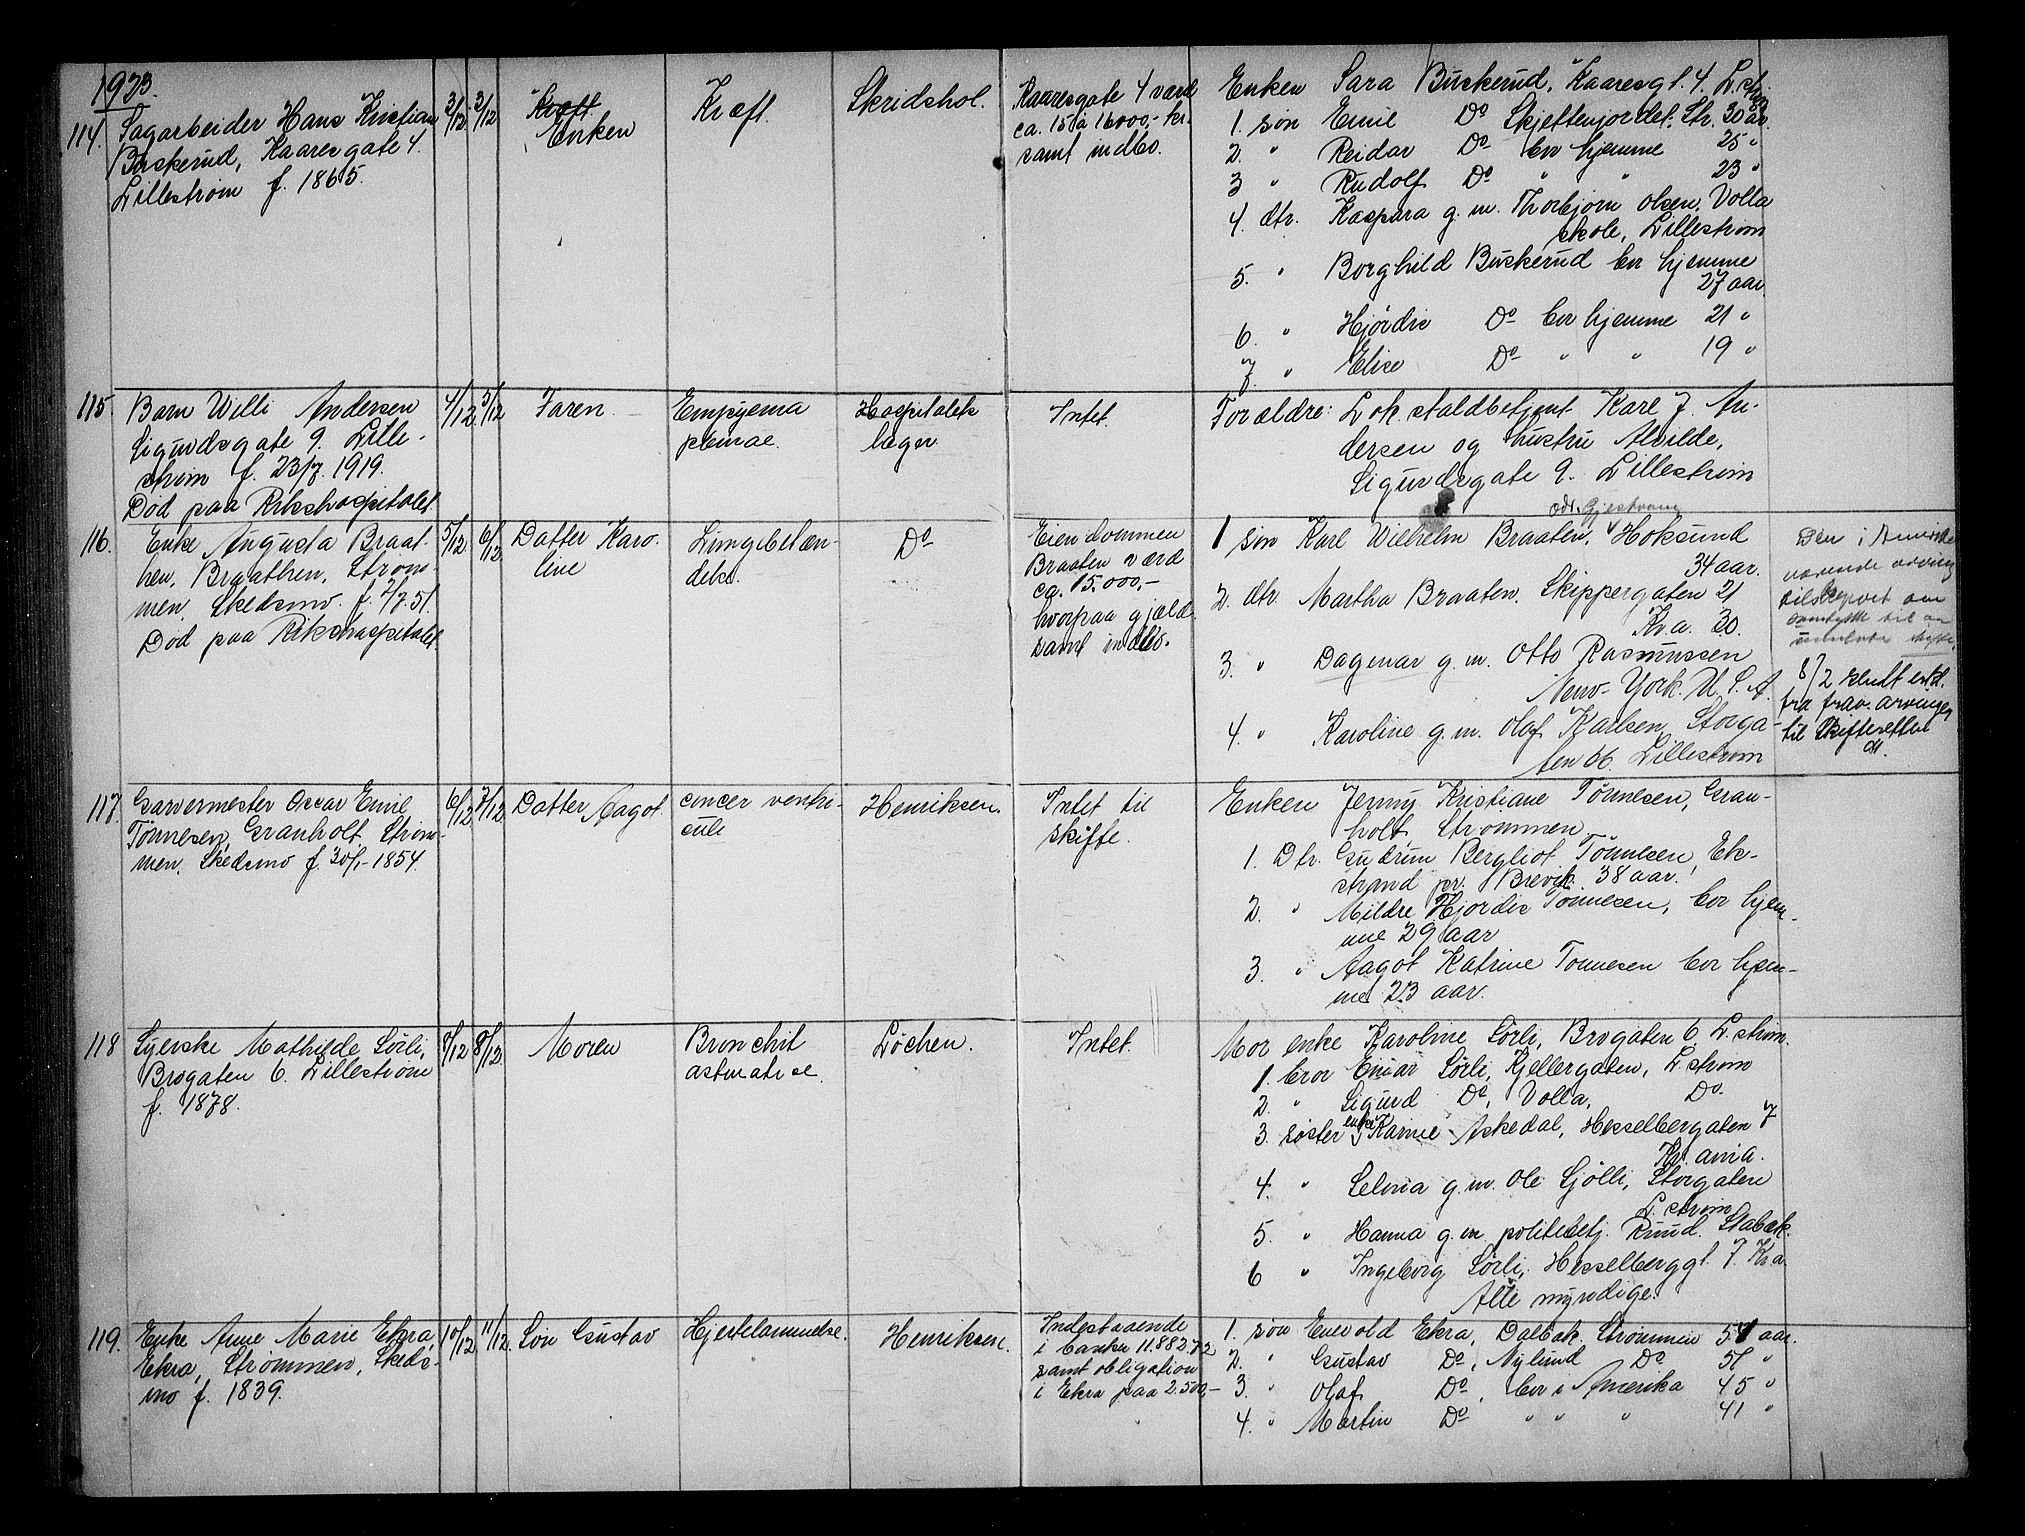 1923.
114. Sagarbeider Hans Kristian
Buskerud, Kaaresgate 4.
Lillestrøm f. 1865.
3/12 3/12
Enken
Kræft.
Skridshol.
Kaaresgate 4 værd
ca. 15 a 16000,- kr.
samt indbo.
Enken Sara Buskerud, Kaaresgt. 4. L.strøm
1. søn Emil Do Skjettenjordet. Str. 30 aar.
2. " Reidar Do bor hjemme 25 "
3 " Rudolf Do " " 23 "
4. dtr. Kaspara g.m. Thorbjørn Olsen, Volla
skole, Lillestrøm
5. " Borghild Buskerud bor hjemme
27 aar.
6. " Hjørdis Do bor hjemme 21 "
7. " Elise Do " " 19 "
115 Barn Willi Andersen
Sigurdsgate 9. Lille-
strøm f. 23/7. 1919.
Død paa Rikshospitalet.
4/12 5/12
Faren
Empyema
pleurae.
Hospitalets
læger
Intet.
Forældre: Lok.staldbetjent Karl J. An-
dersen og hustru Alvilde,
Sigurdsgate 9. Lillestrøm
116. Enke Augusta Braat-
hen, Braathen, Strøm-
men, Skedsmo. f. 2/7.51.
Død paa Rikshospitalet.
5/12 6/12
Datter Karo-
line
Lungebetæn-
delse.
Do
Eiendommen
Braaten værd
ca. 15.000,-
hvorpaa gjæld
samt indbo.
adr. Gjestrang
1 søn Karl Wilhelm Braaten, Hoksund
34 aar.
2. dtr. Martha Braaten, Skippergaten 21
Kr.a. 30.
3. " Dagmar g.m. Otto Rasmussen
New-York. U.S.A.
4. " Karoline g.m. Olaf Karlsen, Storga-
ten 66. Lillestrøm
Den i Amerika
værende arving
tilskrevet om
samtykke til
skifte.
8/2 slutt erkl.
fra frav. arvinger
til Skifteretten
117. Garvermester Oscar Emil
Tønnesen, Granholt, Strøm-
men, Skedsmo f. 30/1-1854.
6/12 7/12
Datter Aagot.
cancer ventri-
culi
Henriksen.
Intet til
skifte.
Enken Jenny Kristiane Tønnesen, Gran-
holt, Strømmen
1. Dtr. Gudrun Bergliot Tønnesen, Ek-
strand pr. Brevik. 38 aar.
2. " Mildre Hjørdis Tønnesen, bor hjem-
me 29 aar
3. " Aagot Katrine Tønnesen bor hjem-
me 23 aar.
118 Syerske Mathilde Sørli,
Brogaten 6. Lillestrøm
f. 1878.
8/12 8/12
Moren
Bronchit
astmatise
Løchen.
Intet.
Mor enke Karoline Sørli, Brogaten 6. L.strøm.
1. bror Einar Sørli, Kjellergaten, L.strøm
2. " Sigurd Do, Volla, Do.
3. søster enke Karine Askedal, Hesselbergaten 7
Kr.ania.
4. " Selma g.m. Ole Sjølli, Storgaten
L.strøm
5. " Hanna g.m. politibetj. Ruud. Stabæk.
6 " Ingeborg Sørli, Hesselberggt. 7. Kr.a.
Alle myndige.
119. Enke Anne Marie Ekra,
Ekra, Strømmen, Skeds-
mo f. 1839.
10/12 11/12.
Søn Gustav
Hjertelammelse.
Henriksen.
Indestaaende
i banker 11.882.72
samt obligation
i Ekra paa 2.500,-
1. søn Enevold Ekra, Dalbak. Strømmen 54 aar.
2. " Gustav Do, Nylund Do 51 "
3. " Olaf Do, bor i Amerika 45 "
4. " Martin Do " " " 41 "